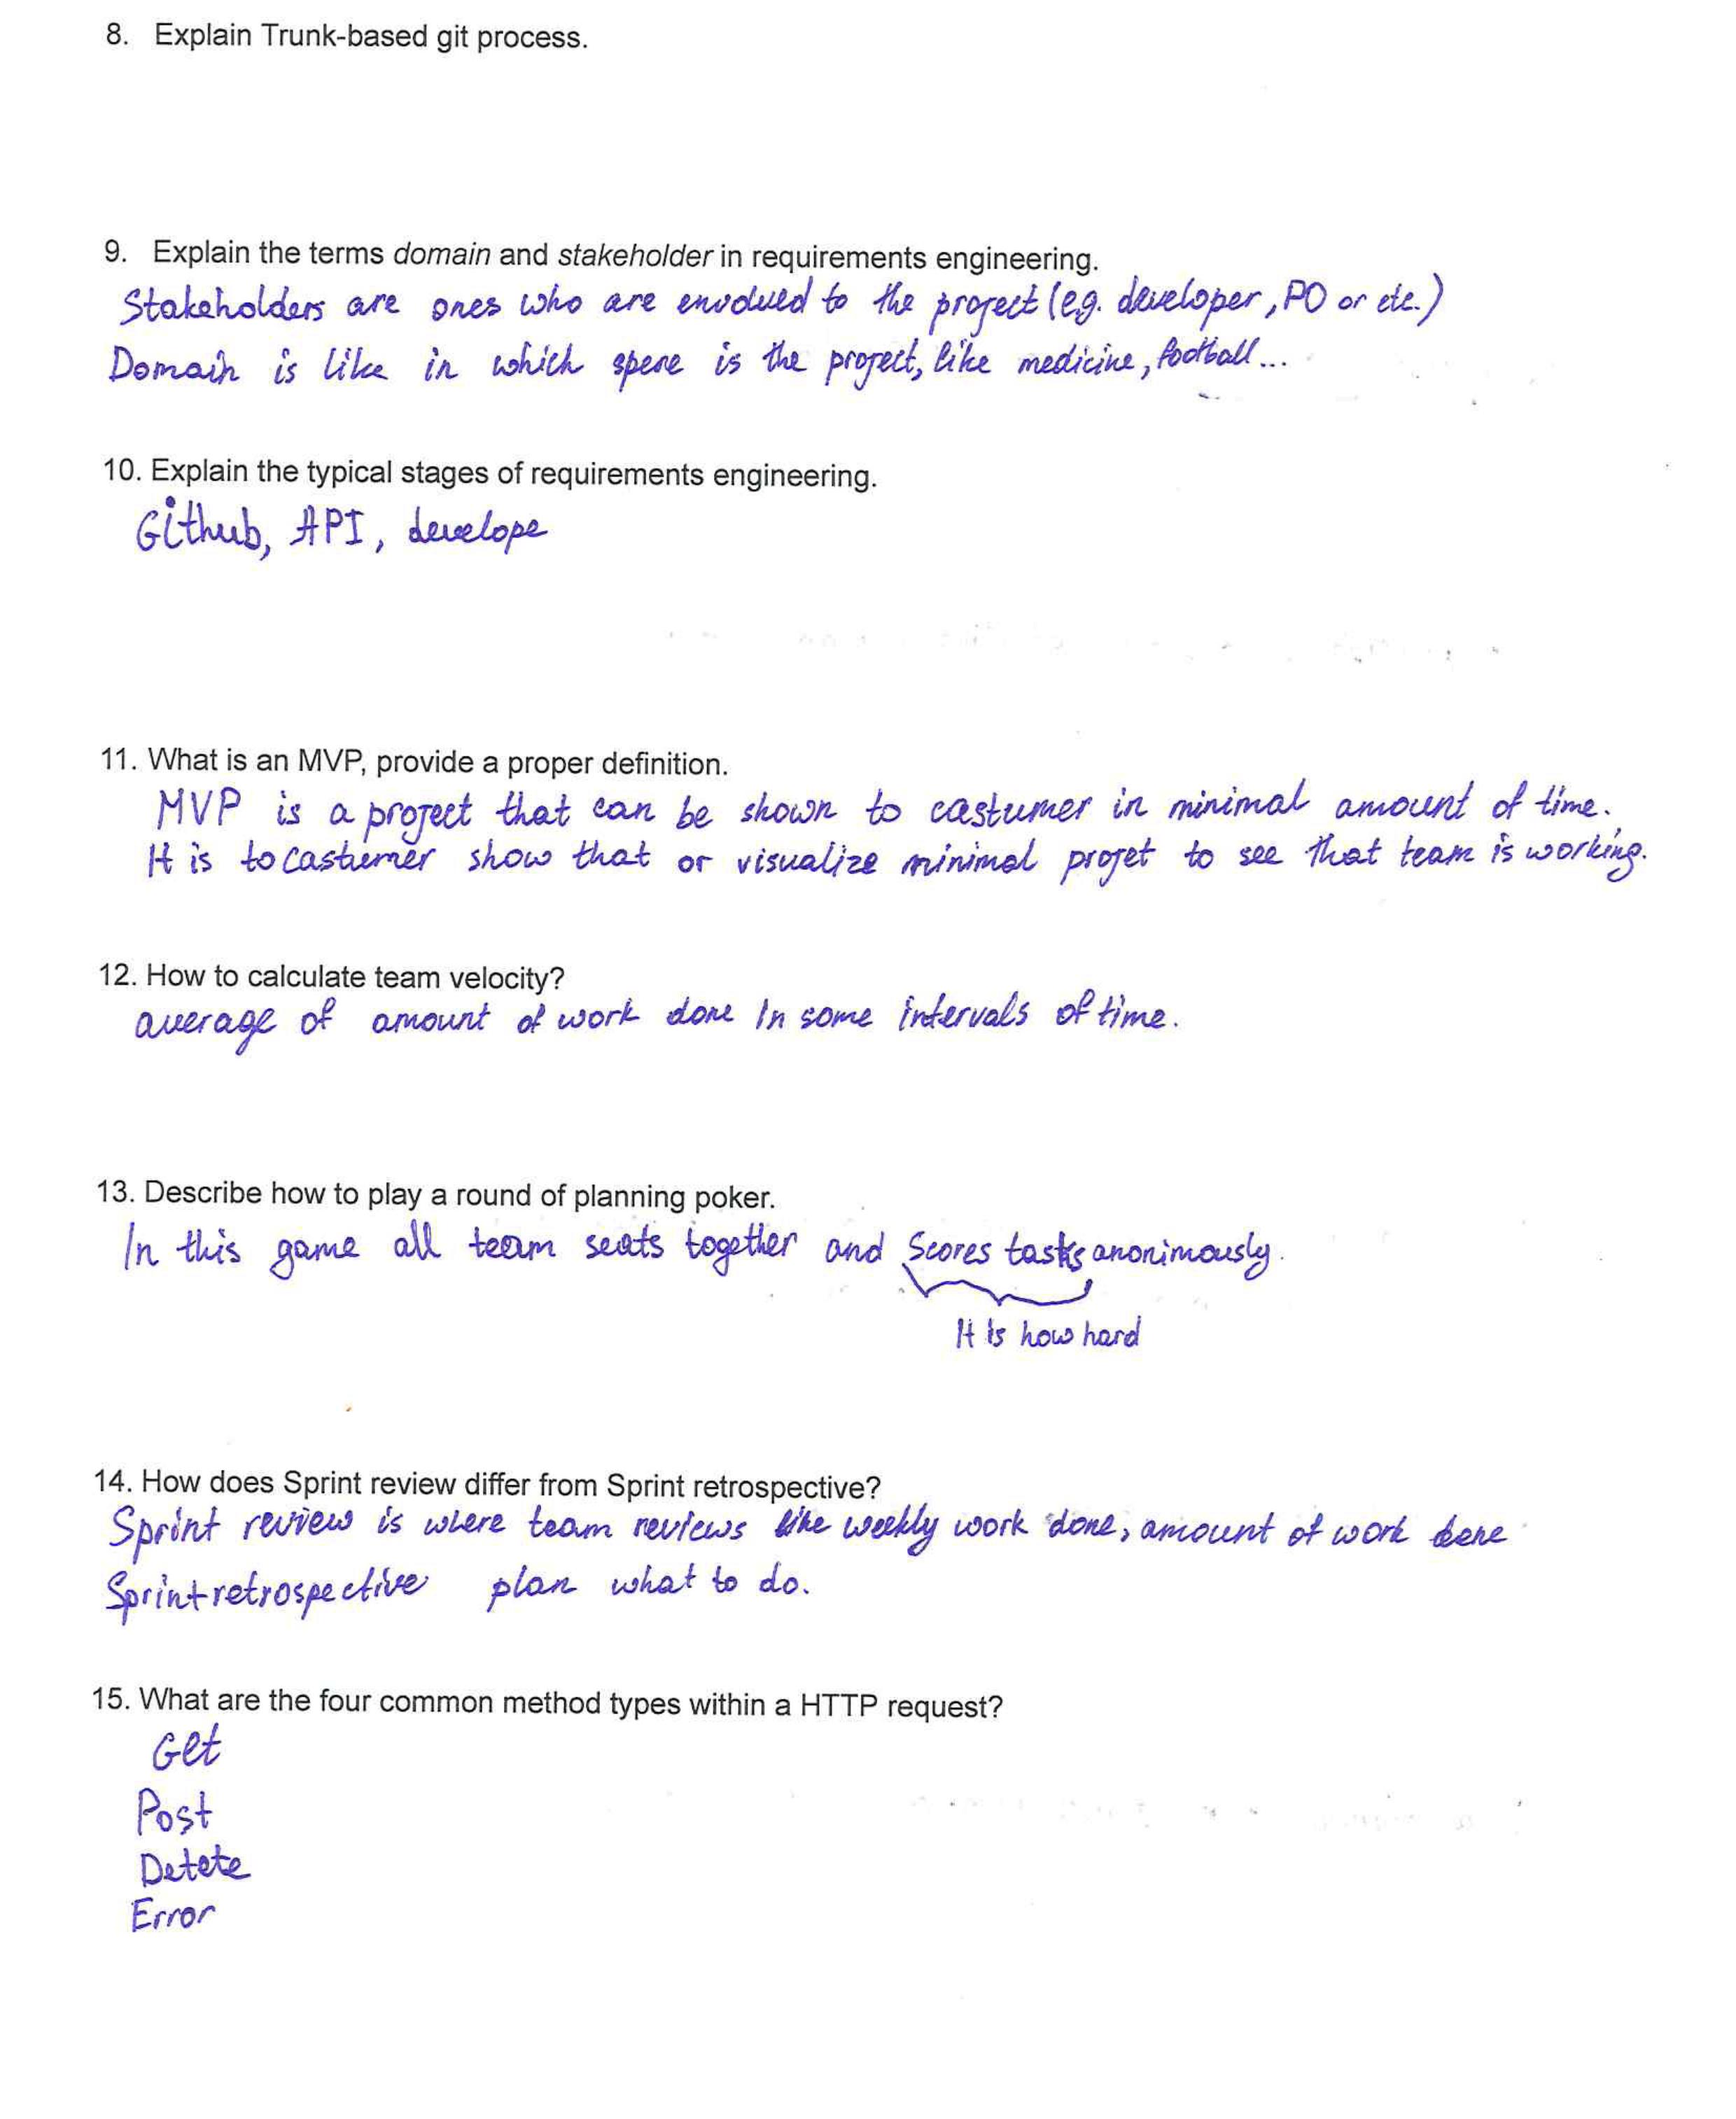 8. Explain Trunk-based git process.
9. Explain the terms domain and stakeholder in requirements engineering.
Stakeholders are ones who are envolued to the project (eg. developer, PO or etc.)
Domain is like in which spere is the project, like medicine, football...
10. Explain the typical stages of requirements engineering.
Github, API, develope
11. What is an MVP, provide a proper definition.
MVP is a project that can be shown to castumer in minimal amount of time.
It is to castumer show that or visualize minimal projet to see that team is working.
12. How to calculate team velocity?
average of amount of work done In some intervals of time.
13. Describe how to play a round of planning poker.
In this game all team seats together and Scores tasks anonimously.
It Is how hard
14. How does Sprint review differ from Sprint retrospective?
Sprint review is where team reviews like weekly work done, amount of work done
Sprint retrospective plan what to do.
15. What are the four common method types within a HTTP request?
Get
Post
Detete
Error